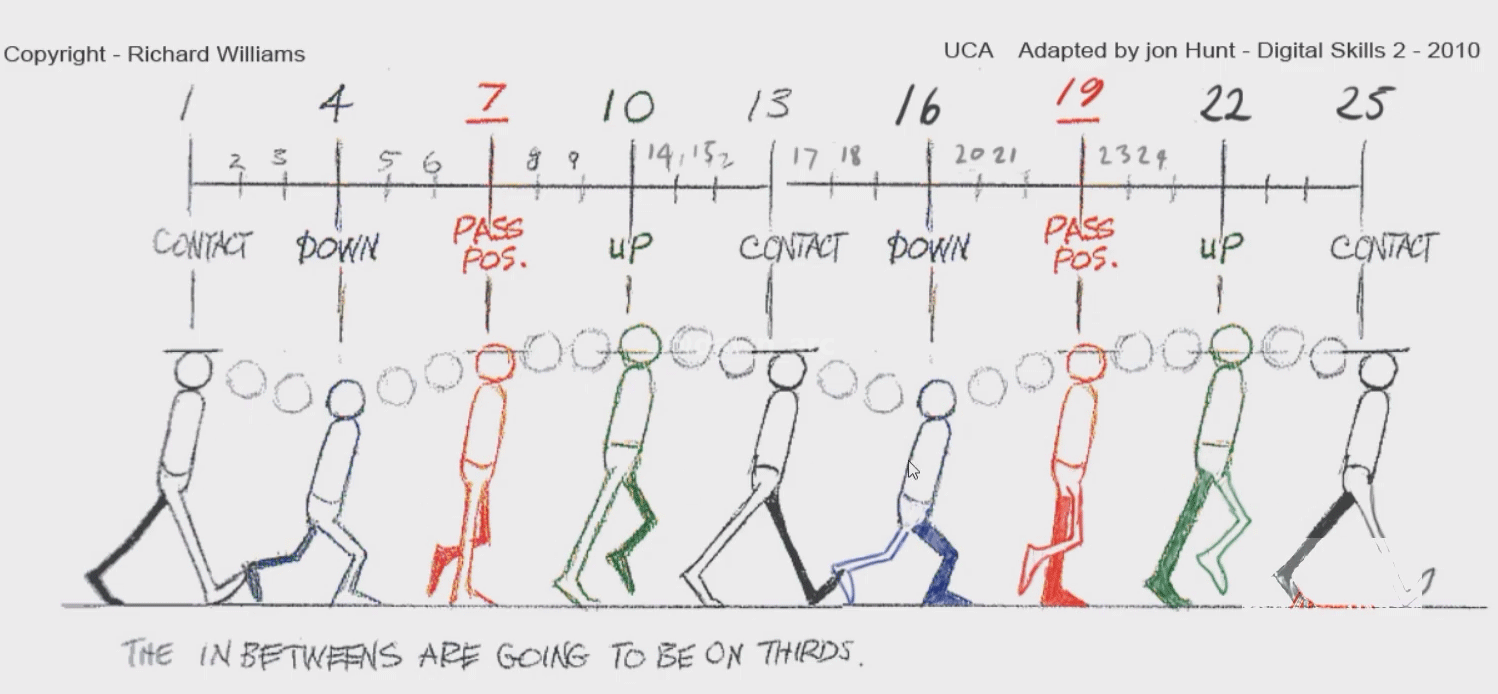 Copyright - Richard Williams
UCA Adapted by jon Hunt - Digital Skills 2 - 2010
1 4 7 10 13 16 19 22 25
2 3 5 6 8 9 14, 15, 17 18 20 21 23 24
CONTACT DOWN PASS POS. UP CONTACT DOWN PASS POS. UP CONTACT
THE INBETWEENS ARE GOING TO BE ON THIRDS.